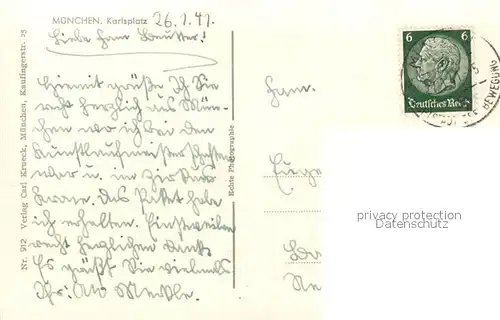 MÜNCHEN. Karlsplatz 26.1.41.
Liebe Frau
Hiermit grüße Ich Sie
recht herzlich aus Mün-
chen wo ich bei den
Kunstlaufmeisterschaften
war u. im Zirkus
Krone. Das Paket habe
ich erhalten. Einstweilen
recht herzlichen Dank
Es grüßt Sie vielmals
Ihr:
Nr. 912 Verlag Carl Krueck, München, Kaufingerstr. 25
Echte Photographie
6 6
Deutsches Reich
BEWEGUNG
Fam.
privacy protection
Datenschutz